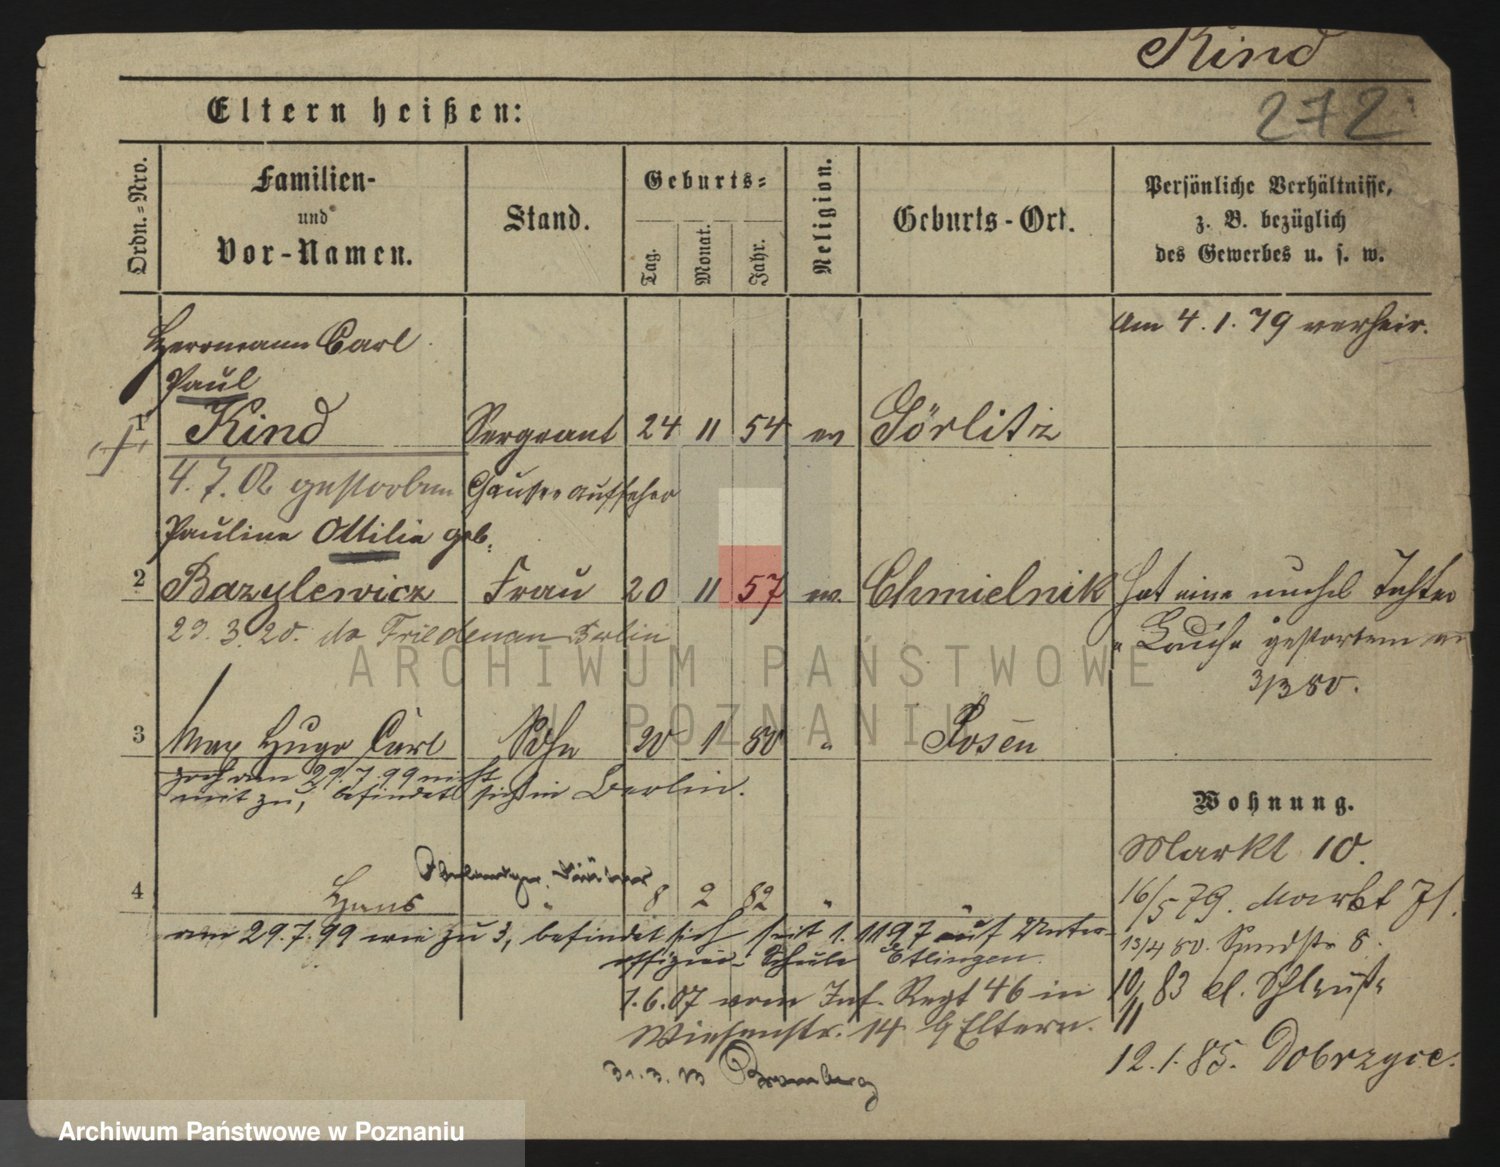 Kind
272
Eltern heißen:
Ordn.=Nro.
Familien-
und
Vor-Namen.
Stand.
Geburts=
Tag.
Monat.
Jahr.
Religion.
Geburts-Ort.
Persönliche Verhältnisse,
z. B. bezüglich
des Gewerbes u. s. w.
Am 4.1.79 verheir.
Herrmann Carl
Paul
1 Kind Sergeant 24 11 54 ev Görlitz
4.7.02 gestorben
Pauline Ottilie geb.
2 Bazylewicz Frau 20 11 57 ev. Chmielnik hat eine unehel Tochter
gestorben
3/3 80.
29.3.20. Friedenau Berlin
3 Max Hugo Carl Sohn 20 1 80 " Posen
29.7.99 nicht
mit zu, befindet sich in Berlin.
Wohnung.
Markt 10.
4 Hans " 8 2 82 " "
16/5 79. Markt
am 29.7.99 wie zu 3, befindet sich seit 1.11 97 auf Unter-
offizier-Schule Etlingen.
13/4 80. 8.
1.6.07 vom Inf. Regt 46 in
10/11 83 kl.
Wiesenstr. 14 b Eltern.
12.1.85. Dobrzyce.
31.3.13 Bromberg
ARCHIWUM PAŃSTWOWE
W POZNANIU
Archiwum Państwowe w Poznaniu